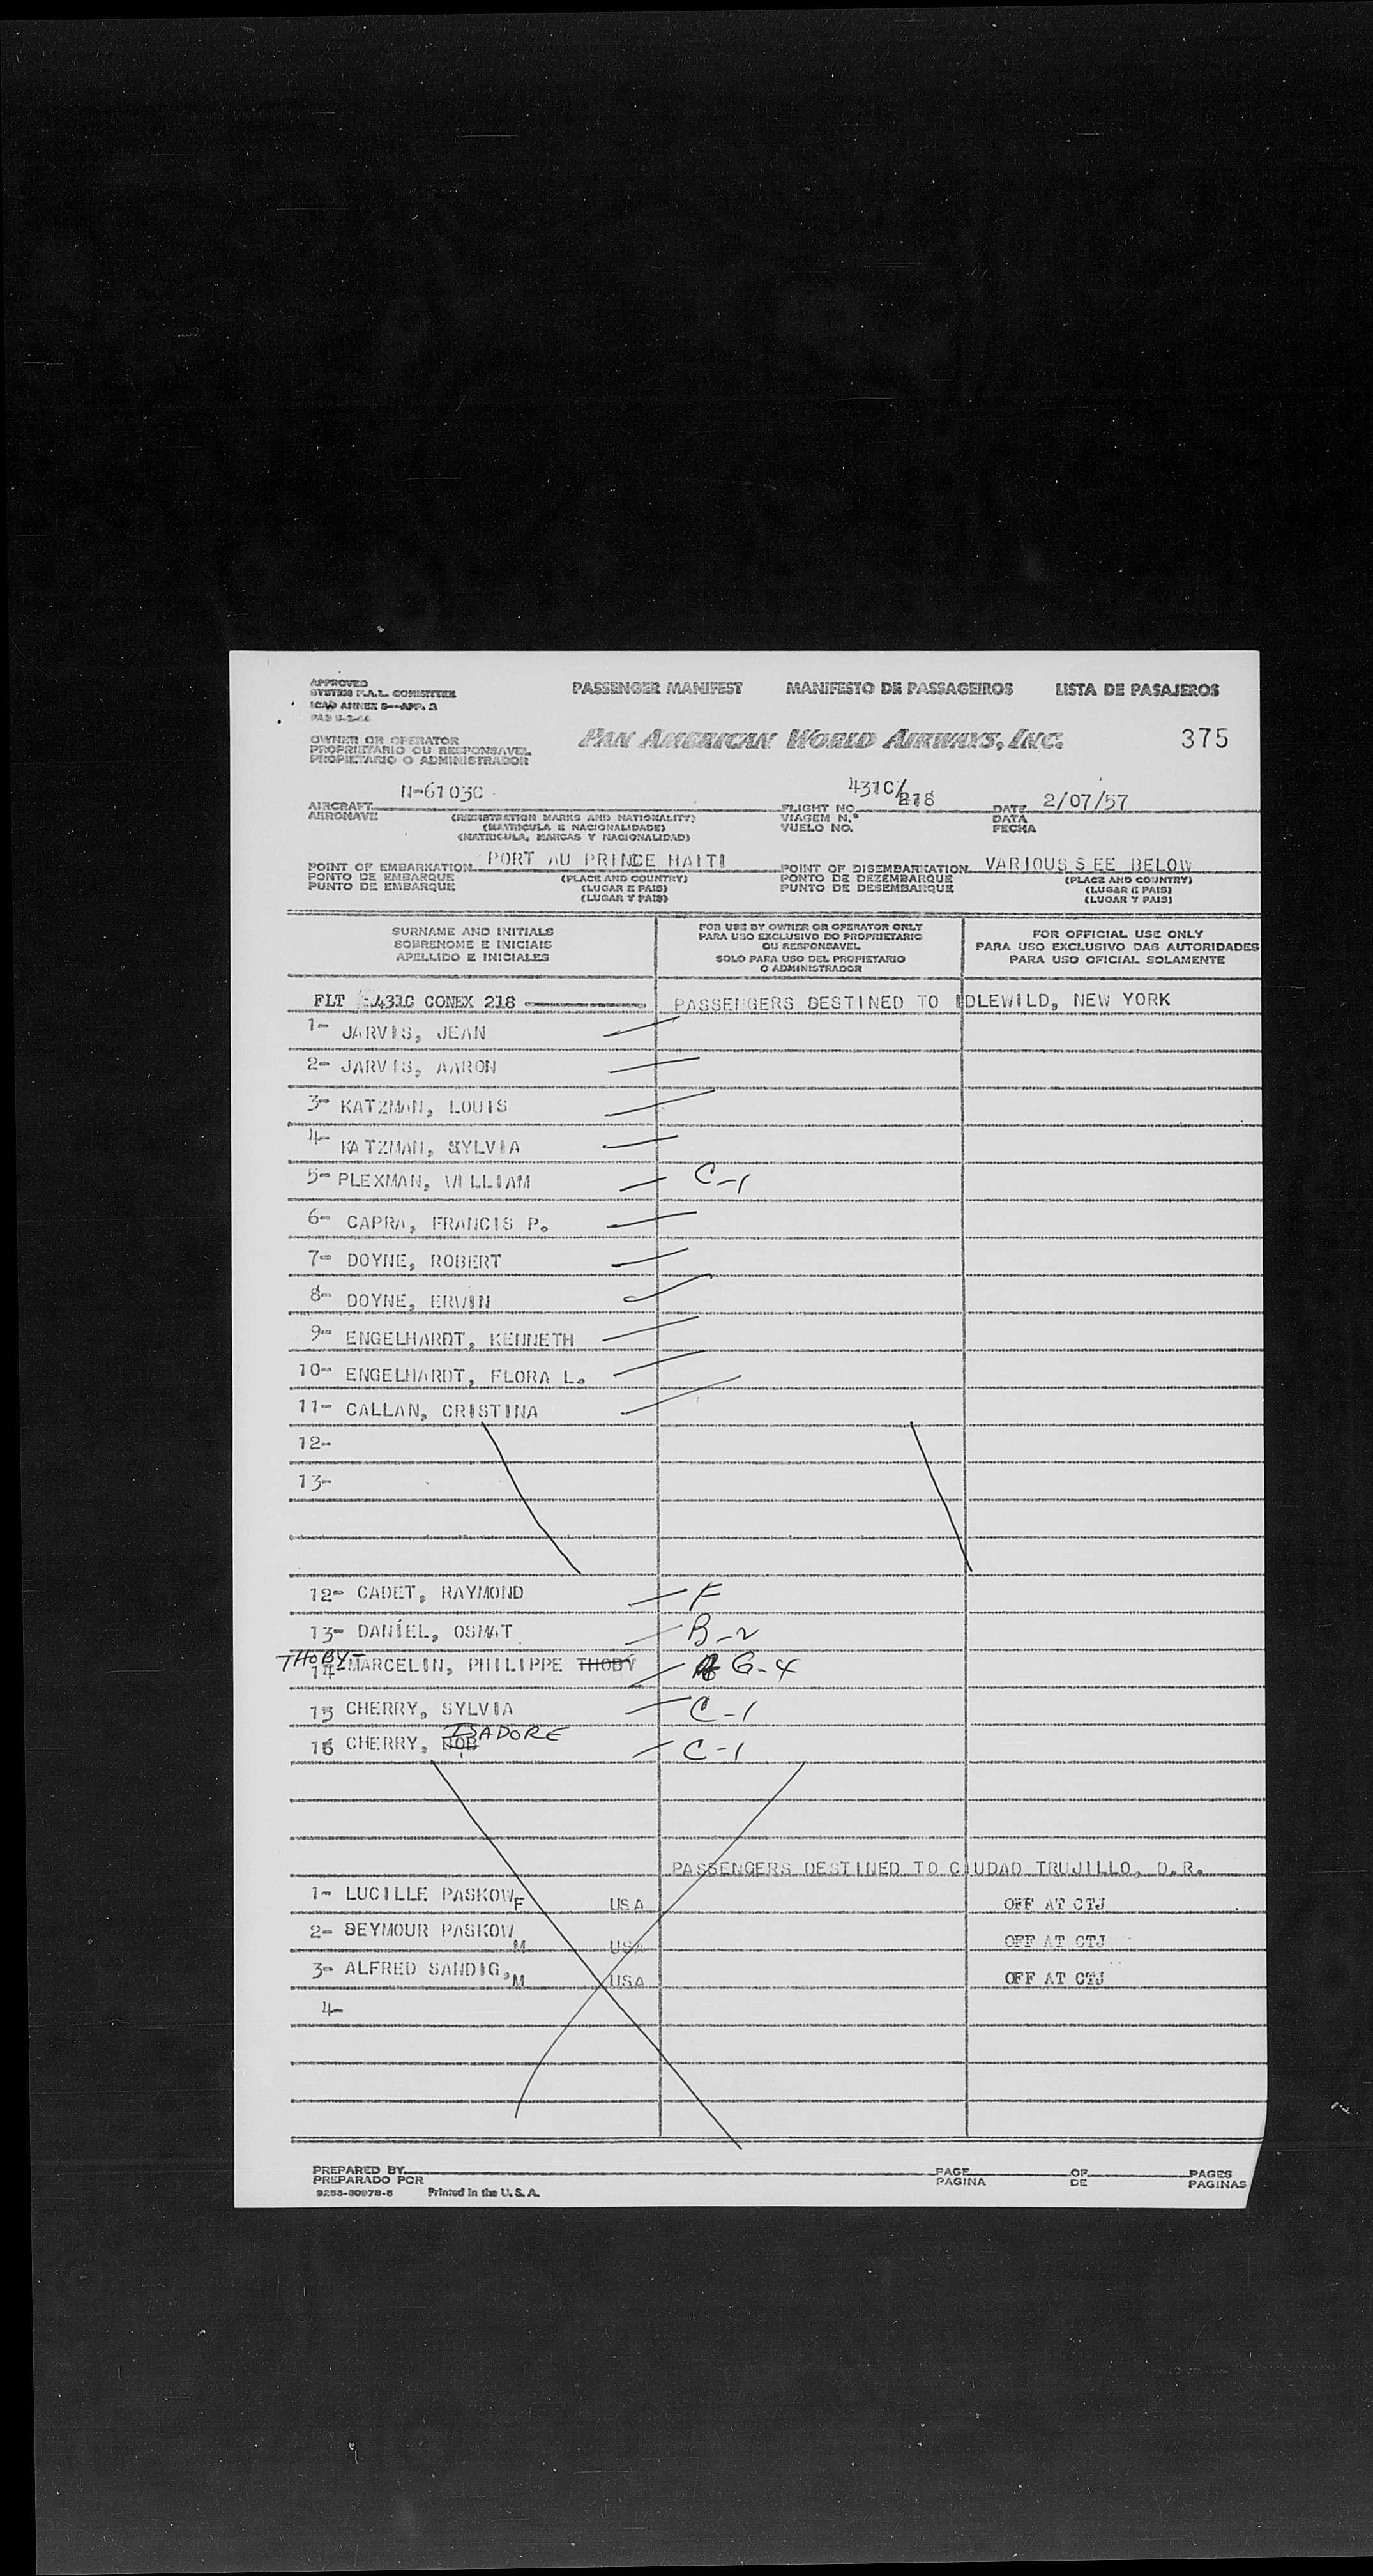 APPROVED
SYSTEM F.A.L. COMMITTEE
ICAO ANNEX 9—APP. 3
PASSENGER MANIFEST MANIFESTO DE PASSAGEIROS LISTA DE PASAJEROS
OWNER OR OPERATOR
PROPRIETARIO OU RESPONSAVEL
PROPIETARIO O ADMINISTRADOR
PAN AMERICAN WORLD AIRWAYS, INC. 375
N-6103C 431C/218 2/07/57
AIRCRAFT FLIGHT NO. DATE
AERONAVE (REGISTRATION MARKS AND NATIONALITY) VIAGEM N.° DATA
(MATRICULA E NACIONALIDADE) VUELO NO. FECHA
(MATRICULA, MARCAS Y NACIONALIDAD)
POINT OF EMBARKATION PORT AU PRINCE HAITI POINT OF DISEMBARKATION VARIOUS SEE BELOW
PONTO DE EMBARQUE (PLACE AND COUNTRY) PONTO DE DEZEMBARQUE (PLACE AND COUNTRY)
PUNTO DE EMBARQUE (LUGAR E PAIS) PUNTO DE DESEMBARQUE (LUGAR E PAIS)
(LUGAR Y PAIS) (LUGAR Y PAIS)
SURNAME AND INITIALS
SOBRENOME E INICIAIS
APELLIDO E INICIALES
FOR USE BY OWNER OR OPERATOR ONLY
PARA USO EXCLUSIVO DO PROPRIETARIO
OU RESPONSAVEL
SOLO PARA USO DEL PROPIETARIO
O ADMINISTRADOR
FOR OFFICIAL USE ONLY
PARA USO EXCLUSIVO DAS AUTORIDADES
PARA USO OFICIAL SOLAMENTE
FLT 431C CONEX 218 PASSENGERS DESTINED TO IDLEWILD, NEW YORK
1- JARVIS, JEAN
2- JARVIS, AARON
3- KATZMAN, LOUIS
4- KATZMAN, SYLVIA
5- PLEXMAN, WILLIAM C-1
6- CAPRA, FRANCIS P.
7- DOYNE, ROBERT
8- DOYNE, ERWIN
9- ENGELHARDT, KENNETH
10- ENGELHARDT, FLORA L.
11- CALLAN, CRISTINA
12-
13-
12- CADET, RAYMOND F
13- DANIEL, OSMAT B-2
THOBY-
14- MARCELIN, PHILIPPE THOBY G-4
15 CHERRY, SYLVIA C-1
16 CHERRY, BOB ISADORE C-1
PASSENGERS DESTINED TO CIUDAD TRUJILLO, D.R.
1- LUCILLE PASKOW, F USA OFF AT CTJ
2- SEYMOUR PASKOW, M USA OFF AT CTJ
3- ALFRED SANDIG, M USA OFF AT CTJ
4-
PREPARED BY PAGE OF PAGES
PREPARADO POR PAGINA DE PAGINAS
Printed in the U. S. A.